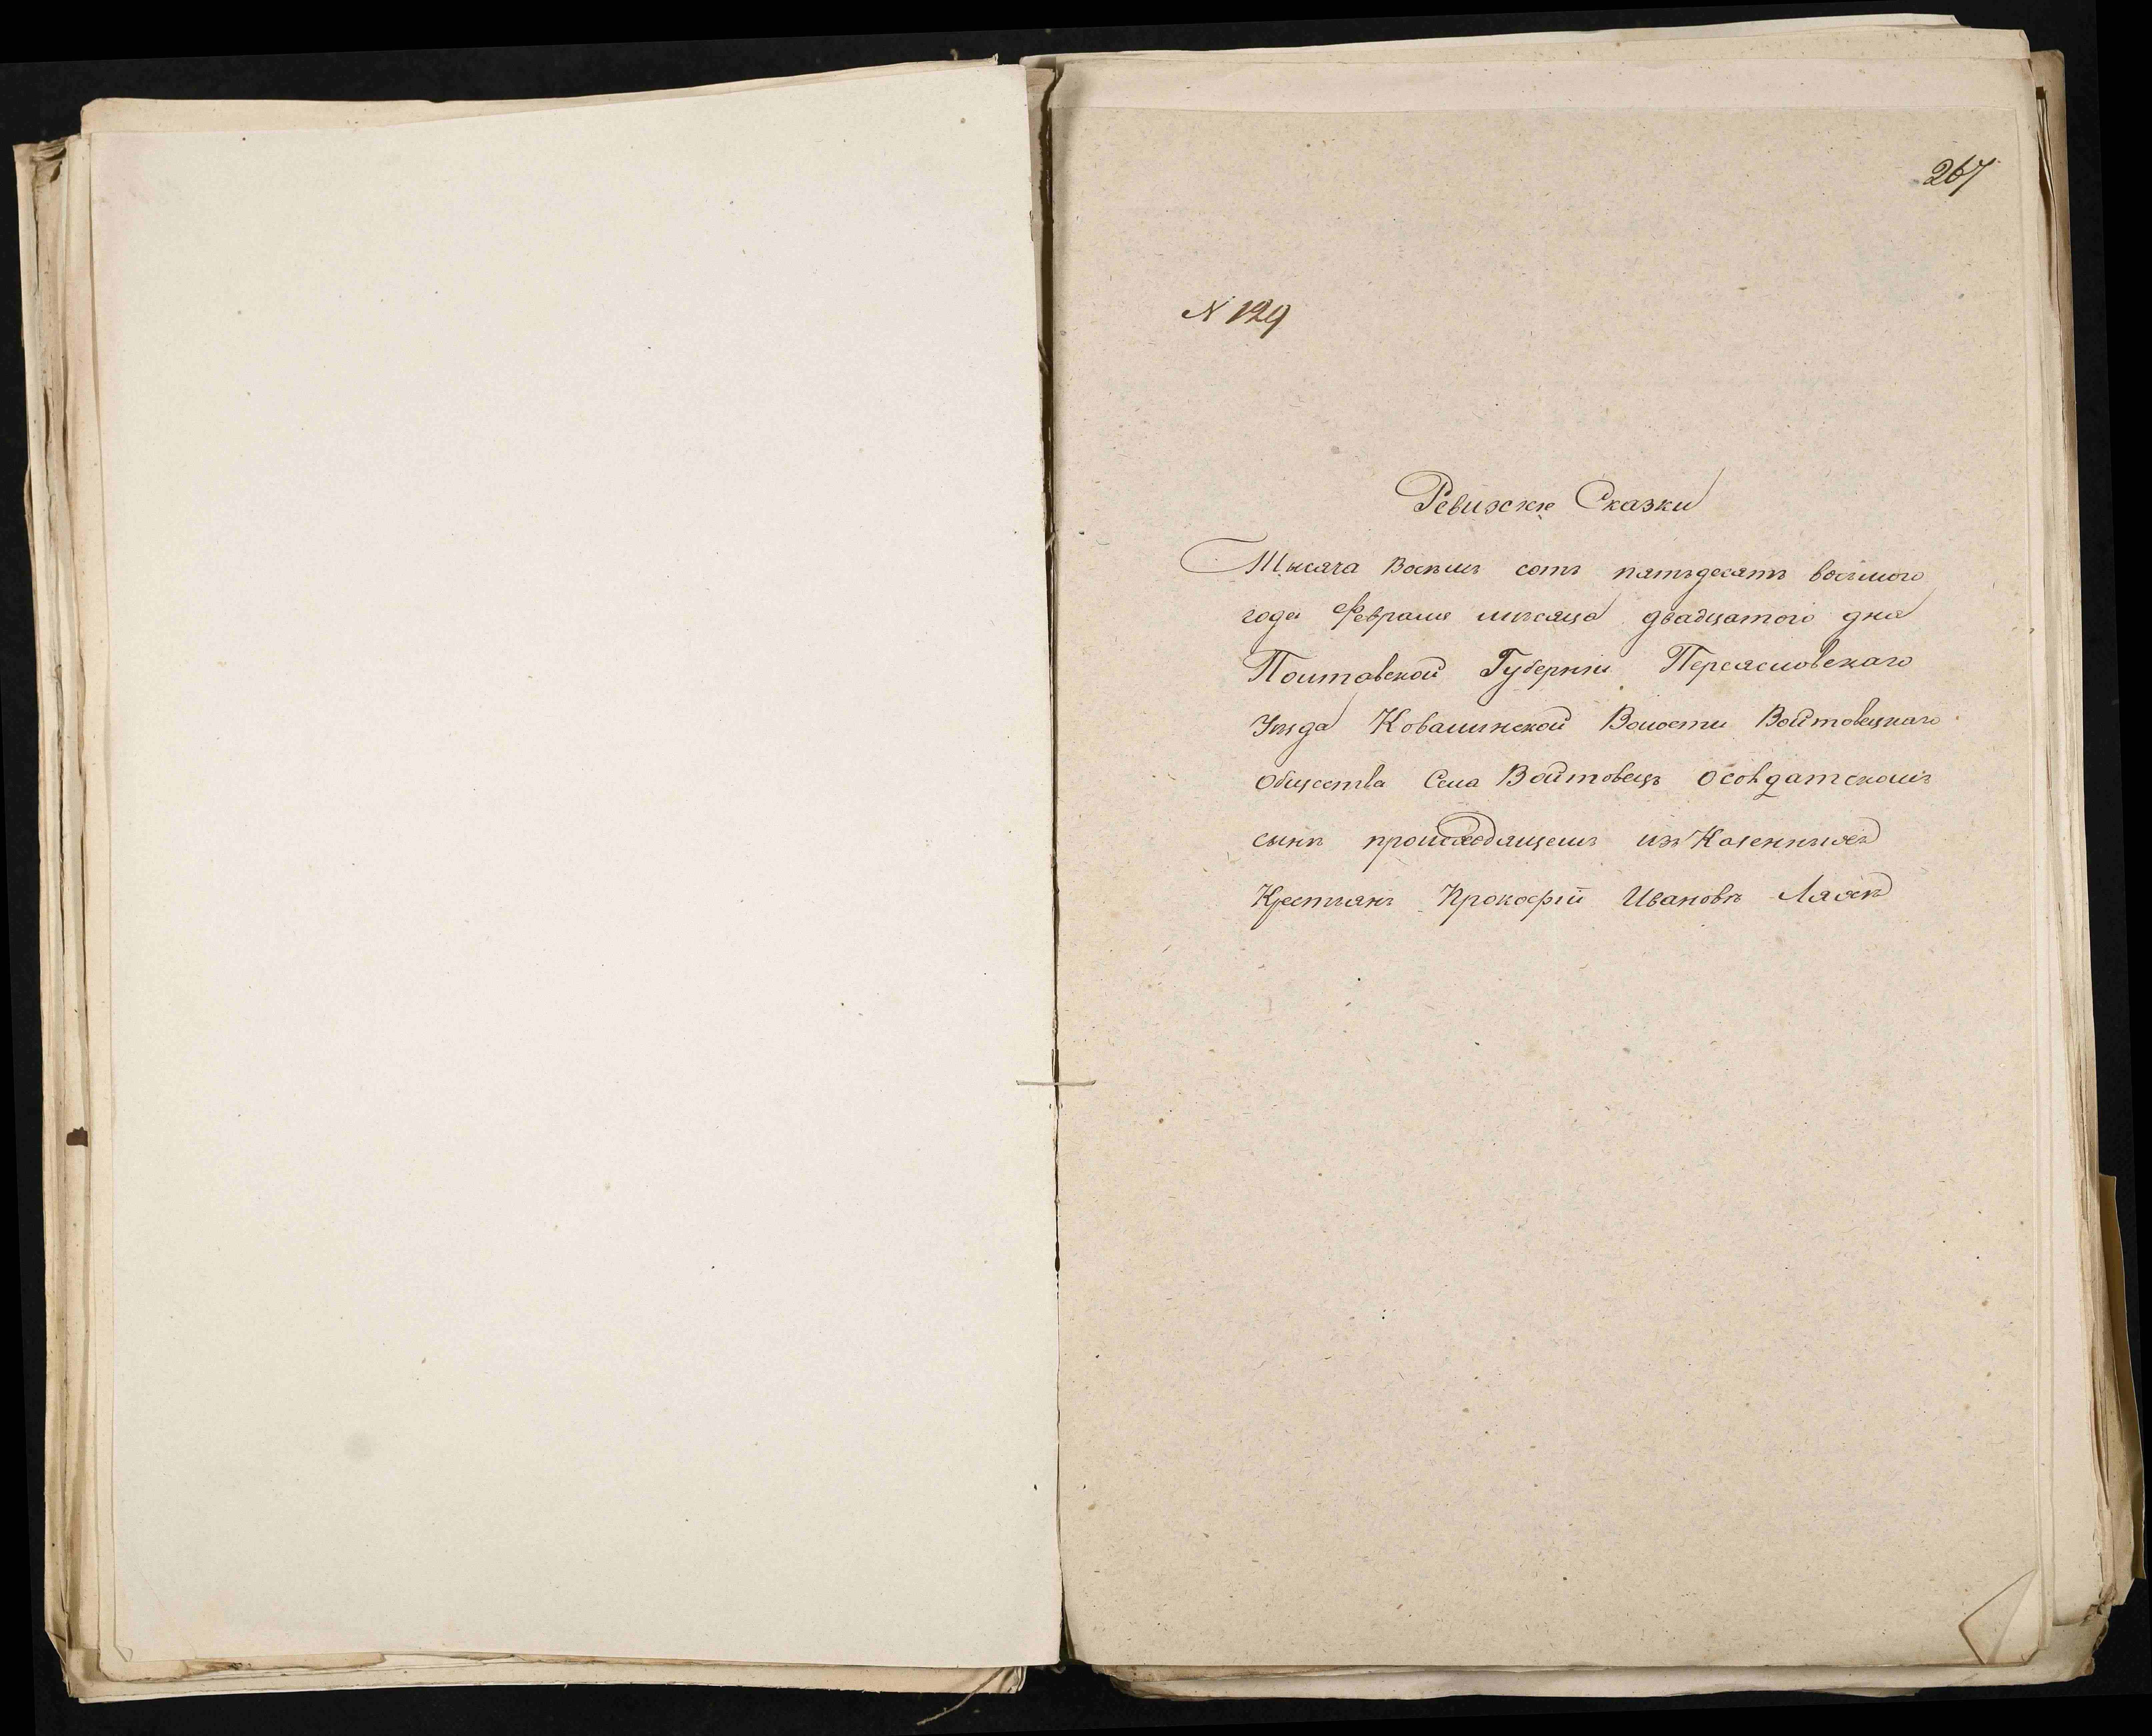 267
N 129
Ревижскіе Сказки
Тысяча Восѣмъ сотъ пятьдесятъ восьмого
года Февраля мѣсяца двадцатого дня
Полтавской Губерніи Переясловскаго
Уѣзда Ковалинской Волости Войтовецкаго
Общества Села Войтовецъ Осолдатскомъ
сынѣ происходящемъ изъ Казенныхъ
Крестьянъ Прокофій Ивановъ